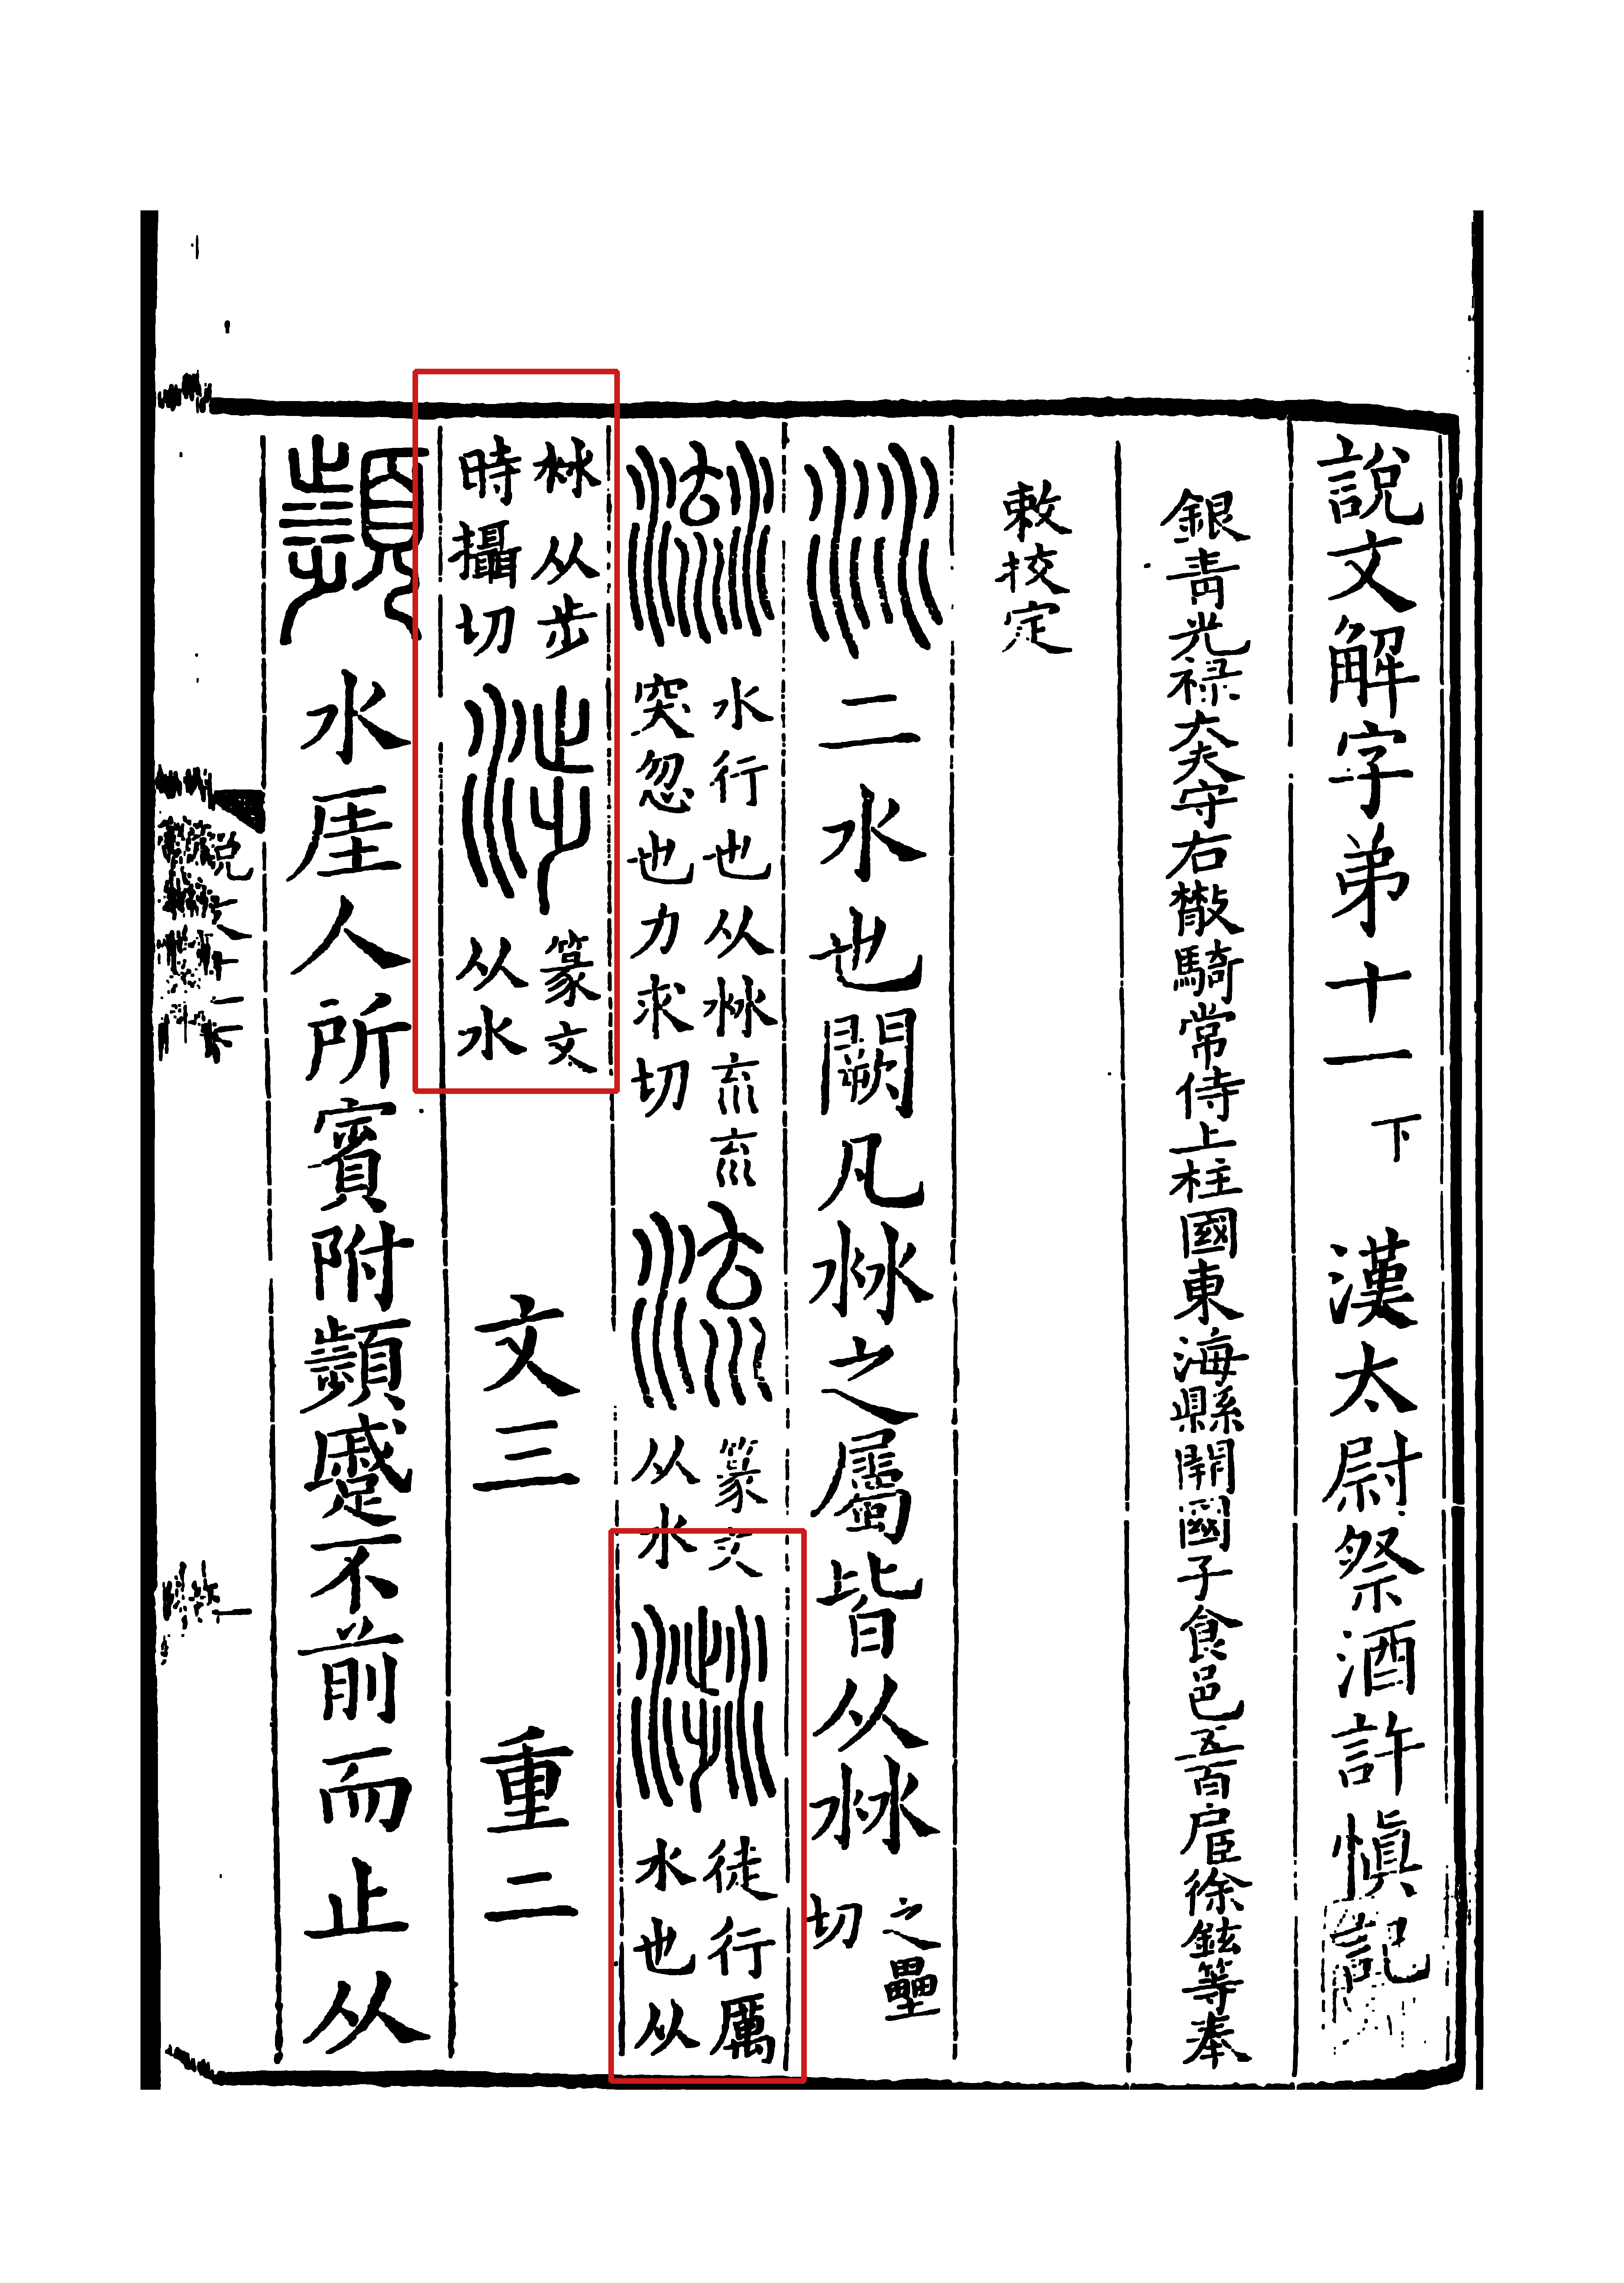 說文解字弟十一下 漢太尉祭酒許愼記
銀青光祿大夫守右散騎常侍上柱國東海縣開國子食邑五百戶臣徐鉉等奉
敕校定
𣲖 二水也闕凡沝之屬皆从沝之壘切
𣻏 水行也从沝㐬㐬突忽也力求切 流 篆文从水 𣻣 徒行厲水也从
沝从步時攝切 涉 篆文从水 文三 重二
顰 水厓人所賓附顰蹙不前而止从